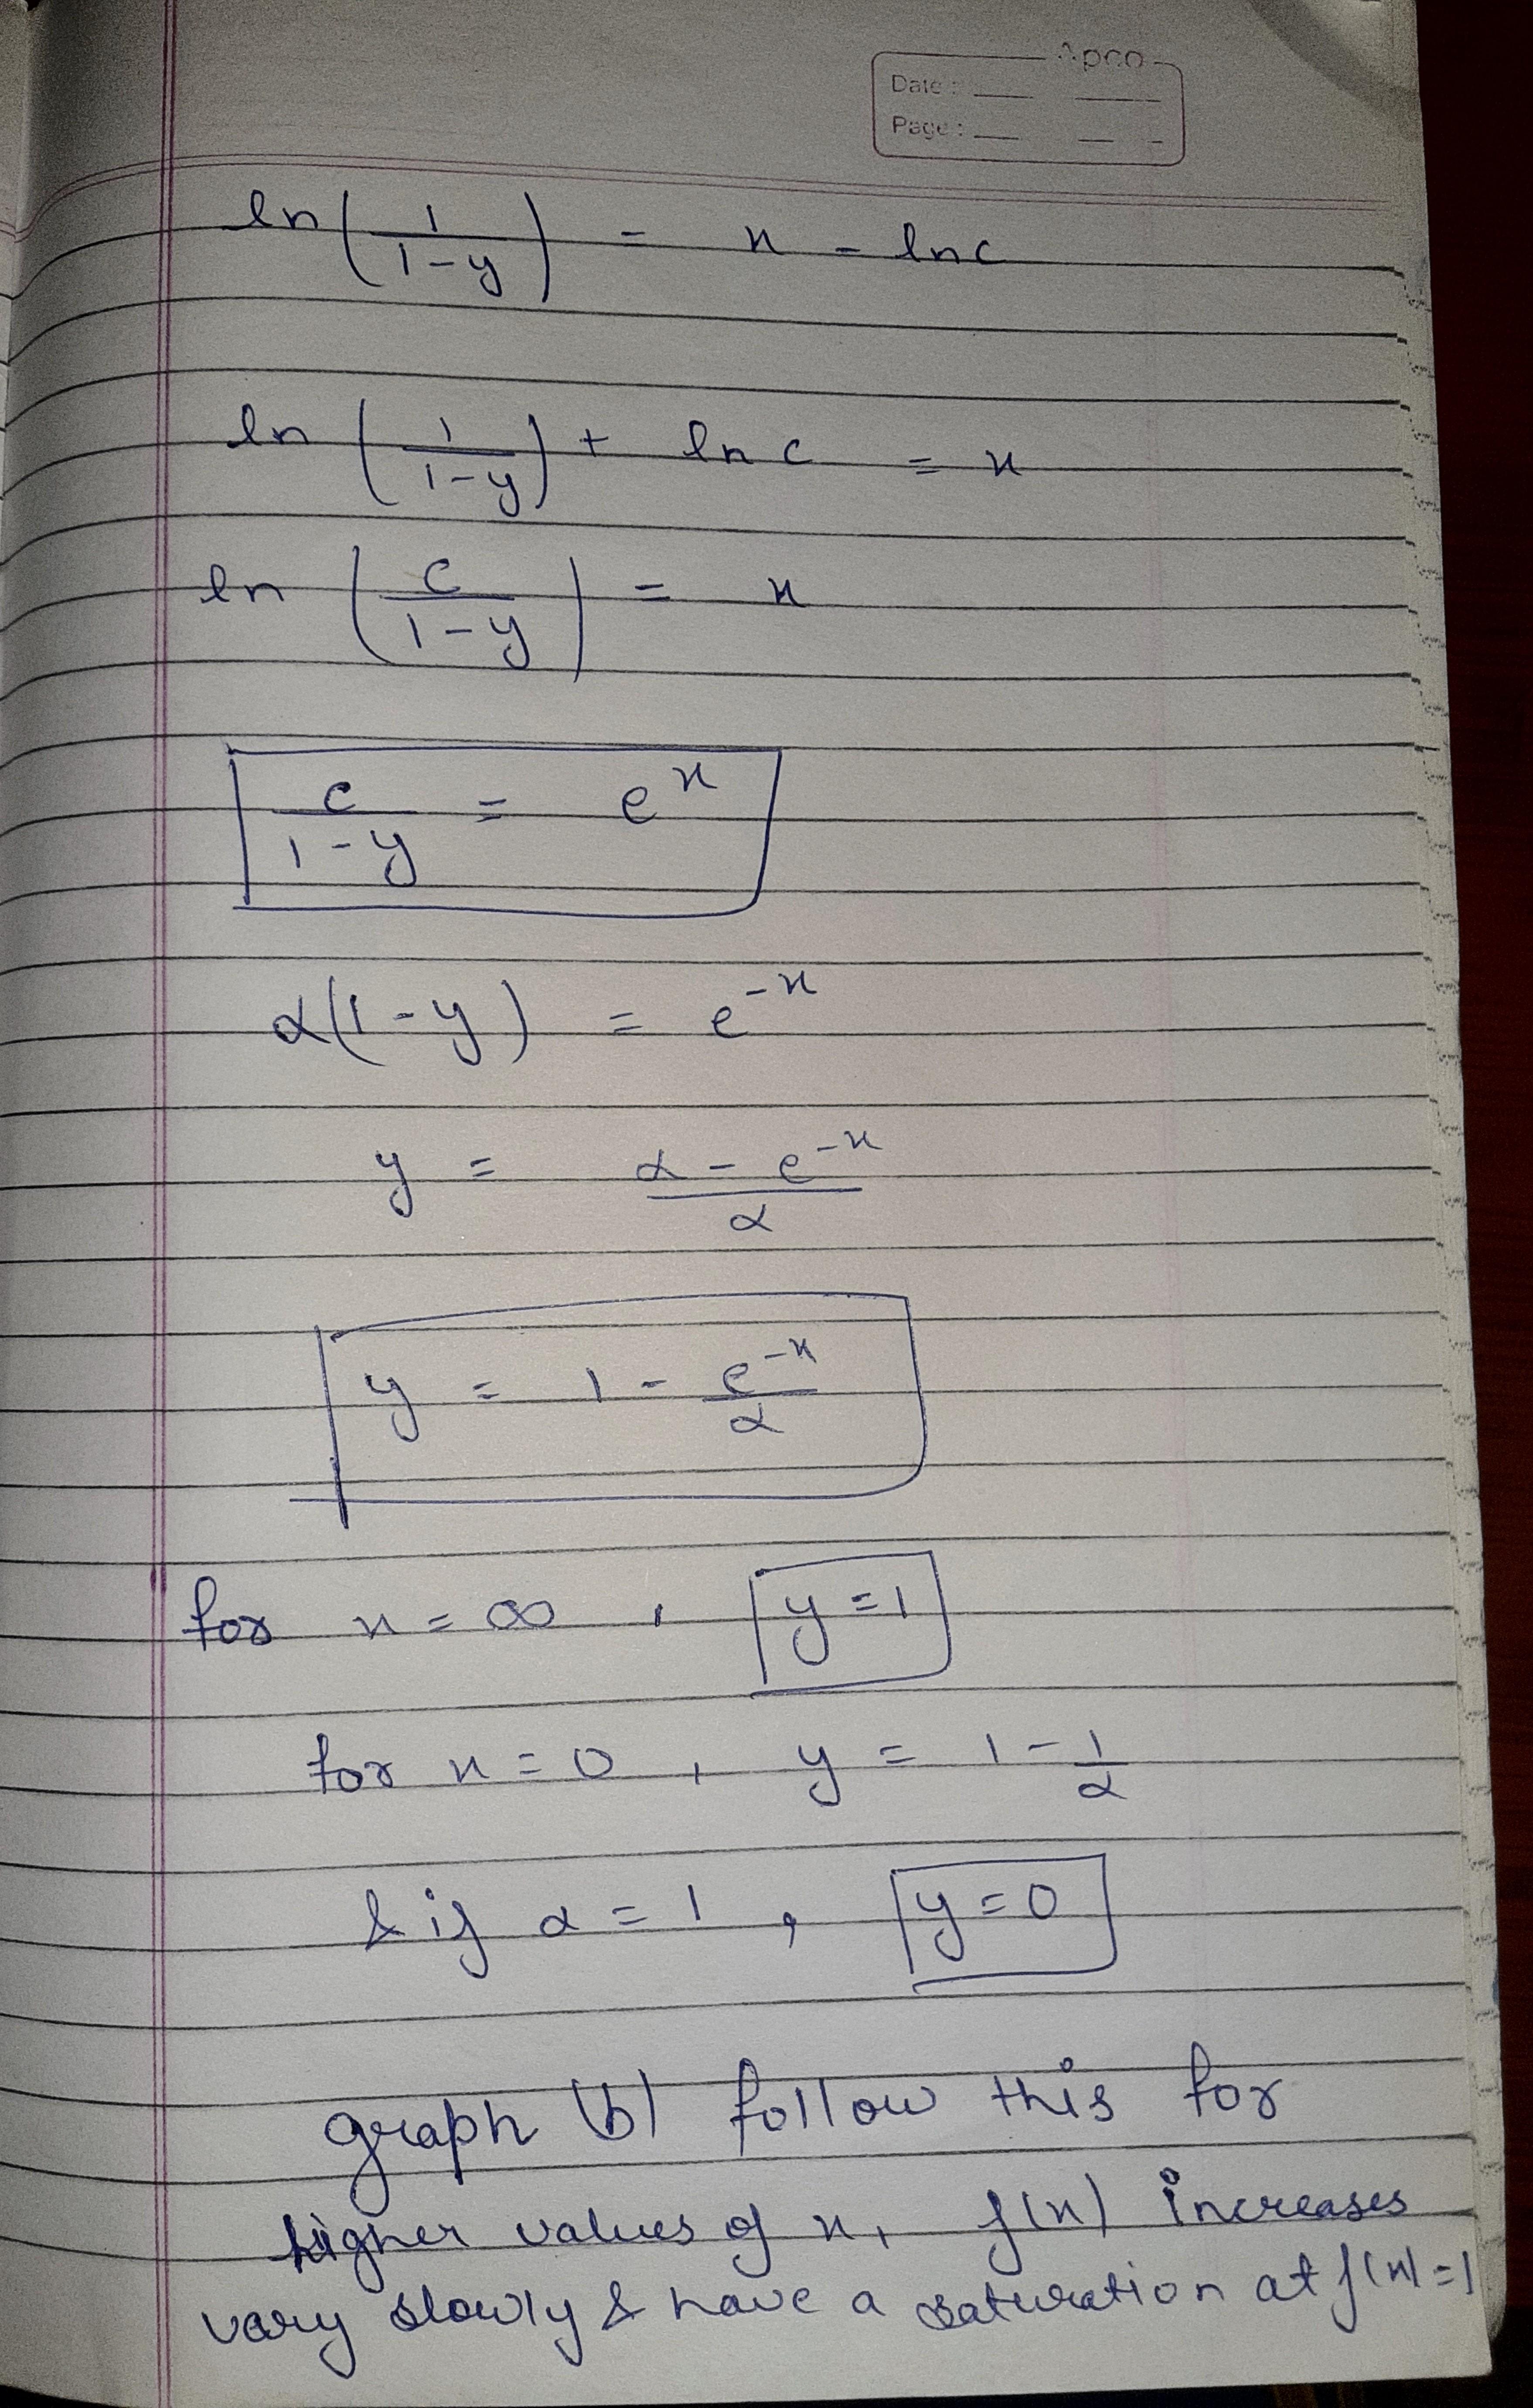 Apco
Date :
Page :
ln(1/(1-y)) = x - lnc
ln(1/(1-y)) + ln c = x
ln(c/(1-y)) = x
c/(1-y) = e^x
α(1-y) = e^-x
y = (α - e^-x)/α
y = 1 - e^-x/α
for x = ∞ , y = 1
for x = 0 , y = 1 - 1/α
& if α = 1 , y = 0
graph (b) follow this for
higher values of x, f(x) increases
vary slowly & have a saturation at f(x) = 1